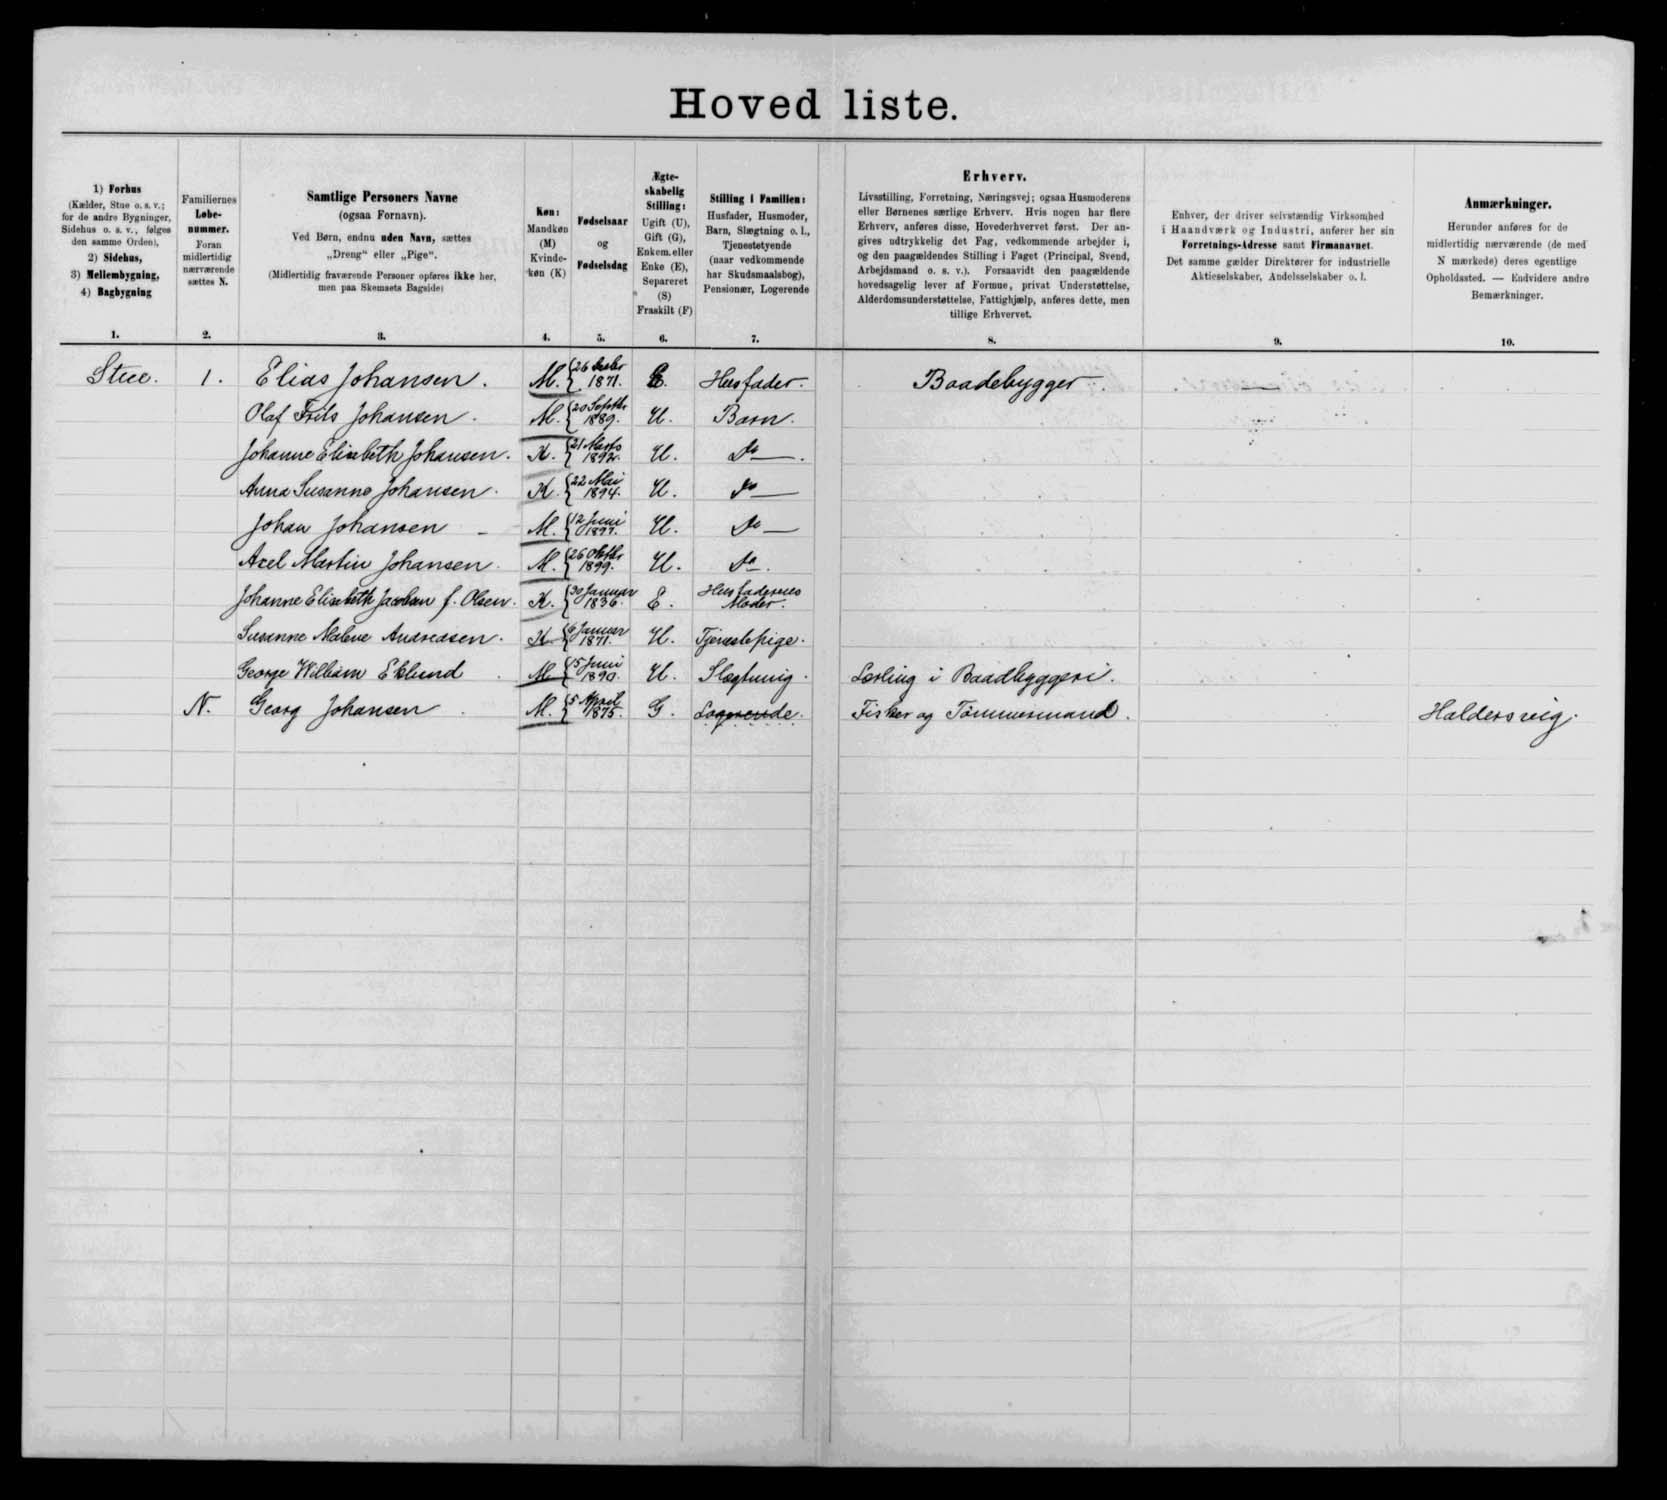 Hoved liste.
1) Forhus
(Kælder, Stue o. s. v.;
for de andre Bygninger,
Sidehus o. s. v., følges
den samme Orden),
2) Sidehus,
3) Mellembygning,
4) Bagbygning
1.
Familiernes
Løbe-
nummer.
Foran
midlertidig
nærværende
sættes N.
2.
Samtlige Personers Navne
(ogsaa Fornavn).
Ved Børn, endnu uden Navn, sættes
„Dreng“ eller „Pige“.
(Midlertidig fraværende Personer opføres ikke her,
men paa Skemaets Bagside)
3.
Køn:
Mandkøn
(M)
Kvinde-
køn (K)
4.
Fødselsaar
og
Fødselsdag
5.
Ægte-
skabelig
Stilling:
Ugift (U),
Gift (G),
Enkem. eller
Enke (E),
Separeret
(S)
Fraskilt (F)
6.
Stilling i Familien:
Husfader, Husmoder,
Barn, Slægtning o. l.,
Tjenestetyende
(naar vedkommende
har Skudsmaalsbog),
Pensionær, Logerende
7.
Erhverv.
Livsstilling, Forretning, Næringsvej; ogsaa Husmoderens
eller Børnenes særlige Erhverv. Hvis nogen har flere
Erhverv, anføres disse, Hovederhvervet først. Der an-
gives udtrykkelig det Fag, vedkommende arbejder i,
og den paagældendes Stilling i Faget (Principal, Svend,
Arbejdsmand o. s. v.). Forsaavidt den paagældende
hovedsagelig lever af Formue, privat Understøttelse,
Alderdomsunderstøttelse, Fattighjælp, anføres dette, men
tillige Erhvervet.
8.
Enhver, der driver selvstændig Virksomhed
i Haandværk og Industri, anfører her sin
Forretnings-Adresse samt Firmanavnet.
Det samme gælder Direktører for industrielle
Aktieselskaber, Andelsselskaber o. l.
9.
Anmærkninger.
Herunder anføres for de
midlertidig nærværende (de med
N mærkede) deres egentlige
Opholdssted. — Endvidere andre
Bemærkninger.
10.
Stue. 1. Elias Johansen. M. 26 1871. E. Husfader. Baadebygger.
Olaf Frits Johansen. M. 20 Septbr 1889. U. Barn.
Johanne Elisabeth Johansen. K. 21 Marts 1892. U. Do —
Anna Susanne Johansen. K. 22 Mai 1894. U. Do —
Johan Johansen — M. 12 Juni 1897. U. Do —
Axel Martin Johansen. M. 26 Oktbr 1899. U. Do.
Johanne Elisabeth Jacobsen f. Olsen. K. 30 Januar 1836. E. Husfaderens Moder.
Susanne Malene Andreasen. K 6 Januar 1871. U. Tjenestepige.
George William Eklund. M 15 Juni 1890. U. Slægtning. Lærling i Baadbyggeri.
N. Georg Johansen. M. 5 April 1875. G. Logerende. Fisker og Tømmermand. Haldersvig.